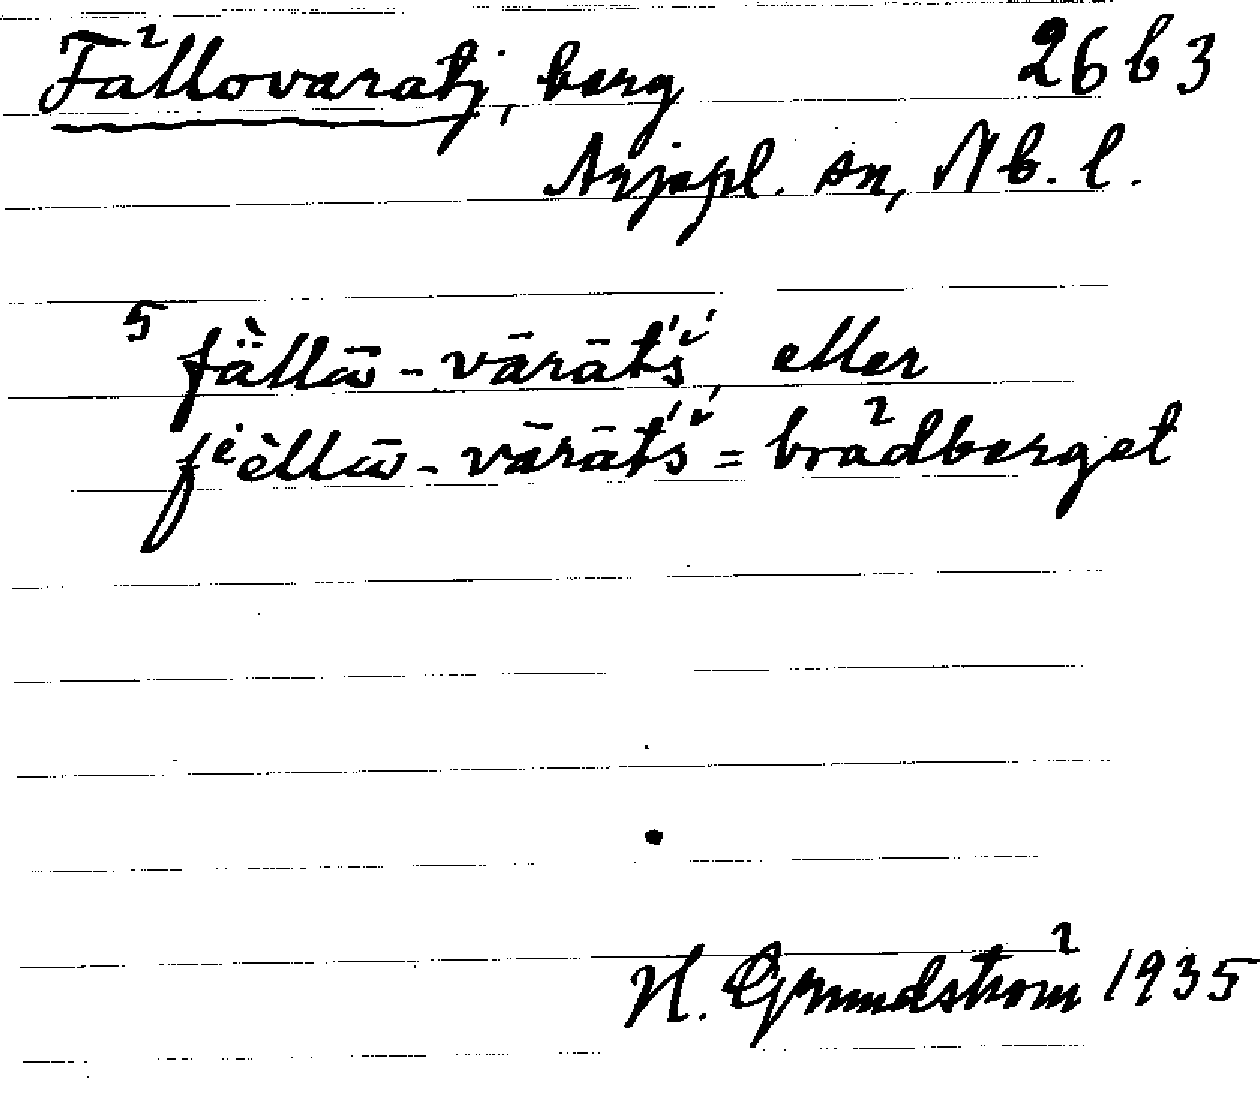 Fällovaratj, berg 26 b 3
Arjepl. sn, Nb. l.
5 fä̀llω̄-vārāt́š́, eller
fⁱèllω̄-vārāt́š́ = brådberget
H. Grundström 1935